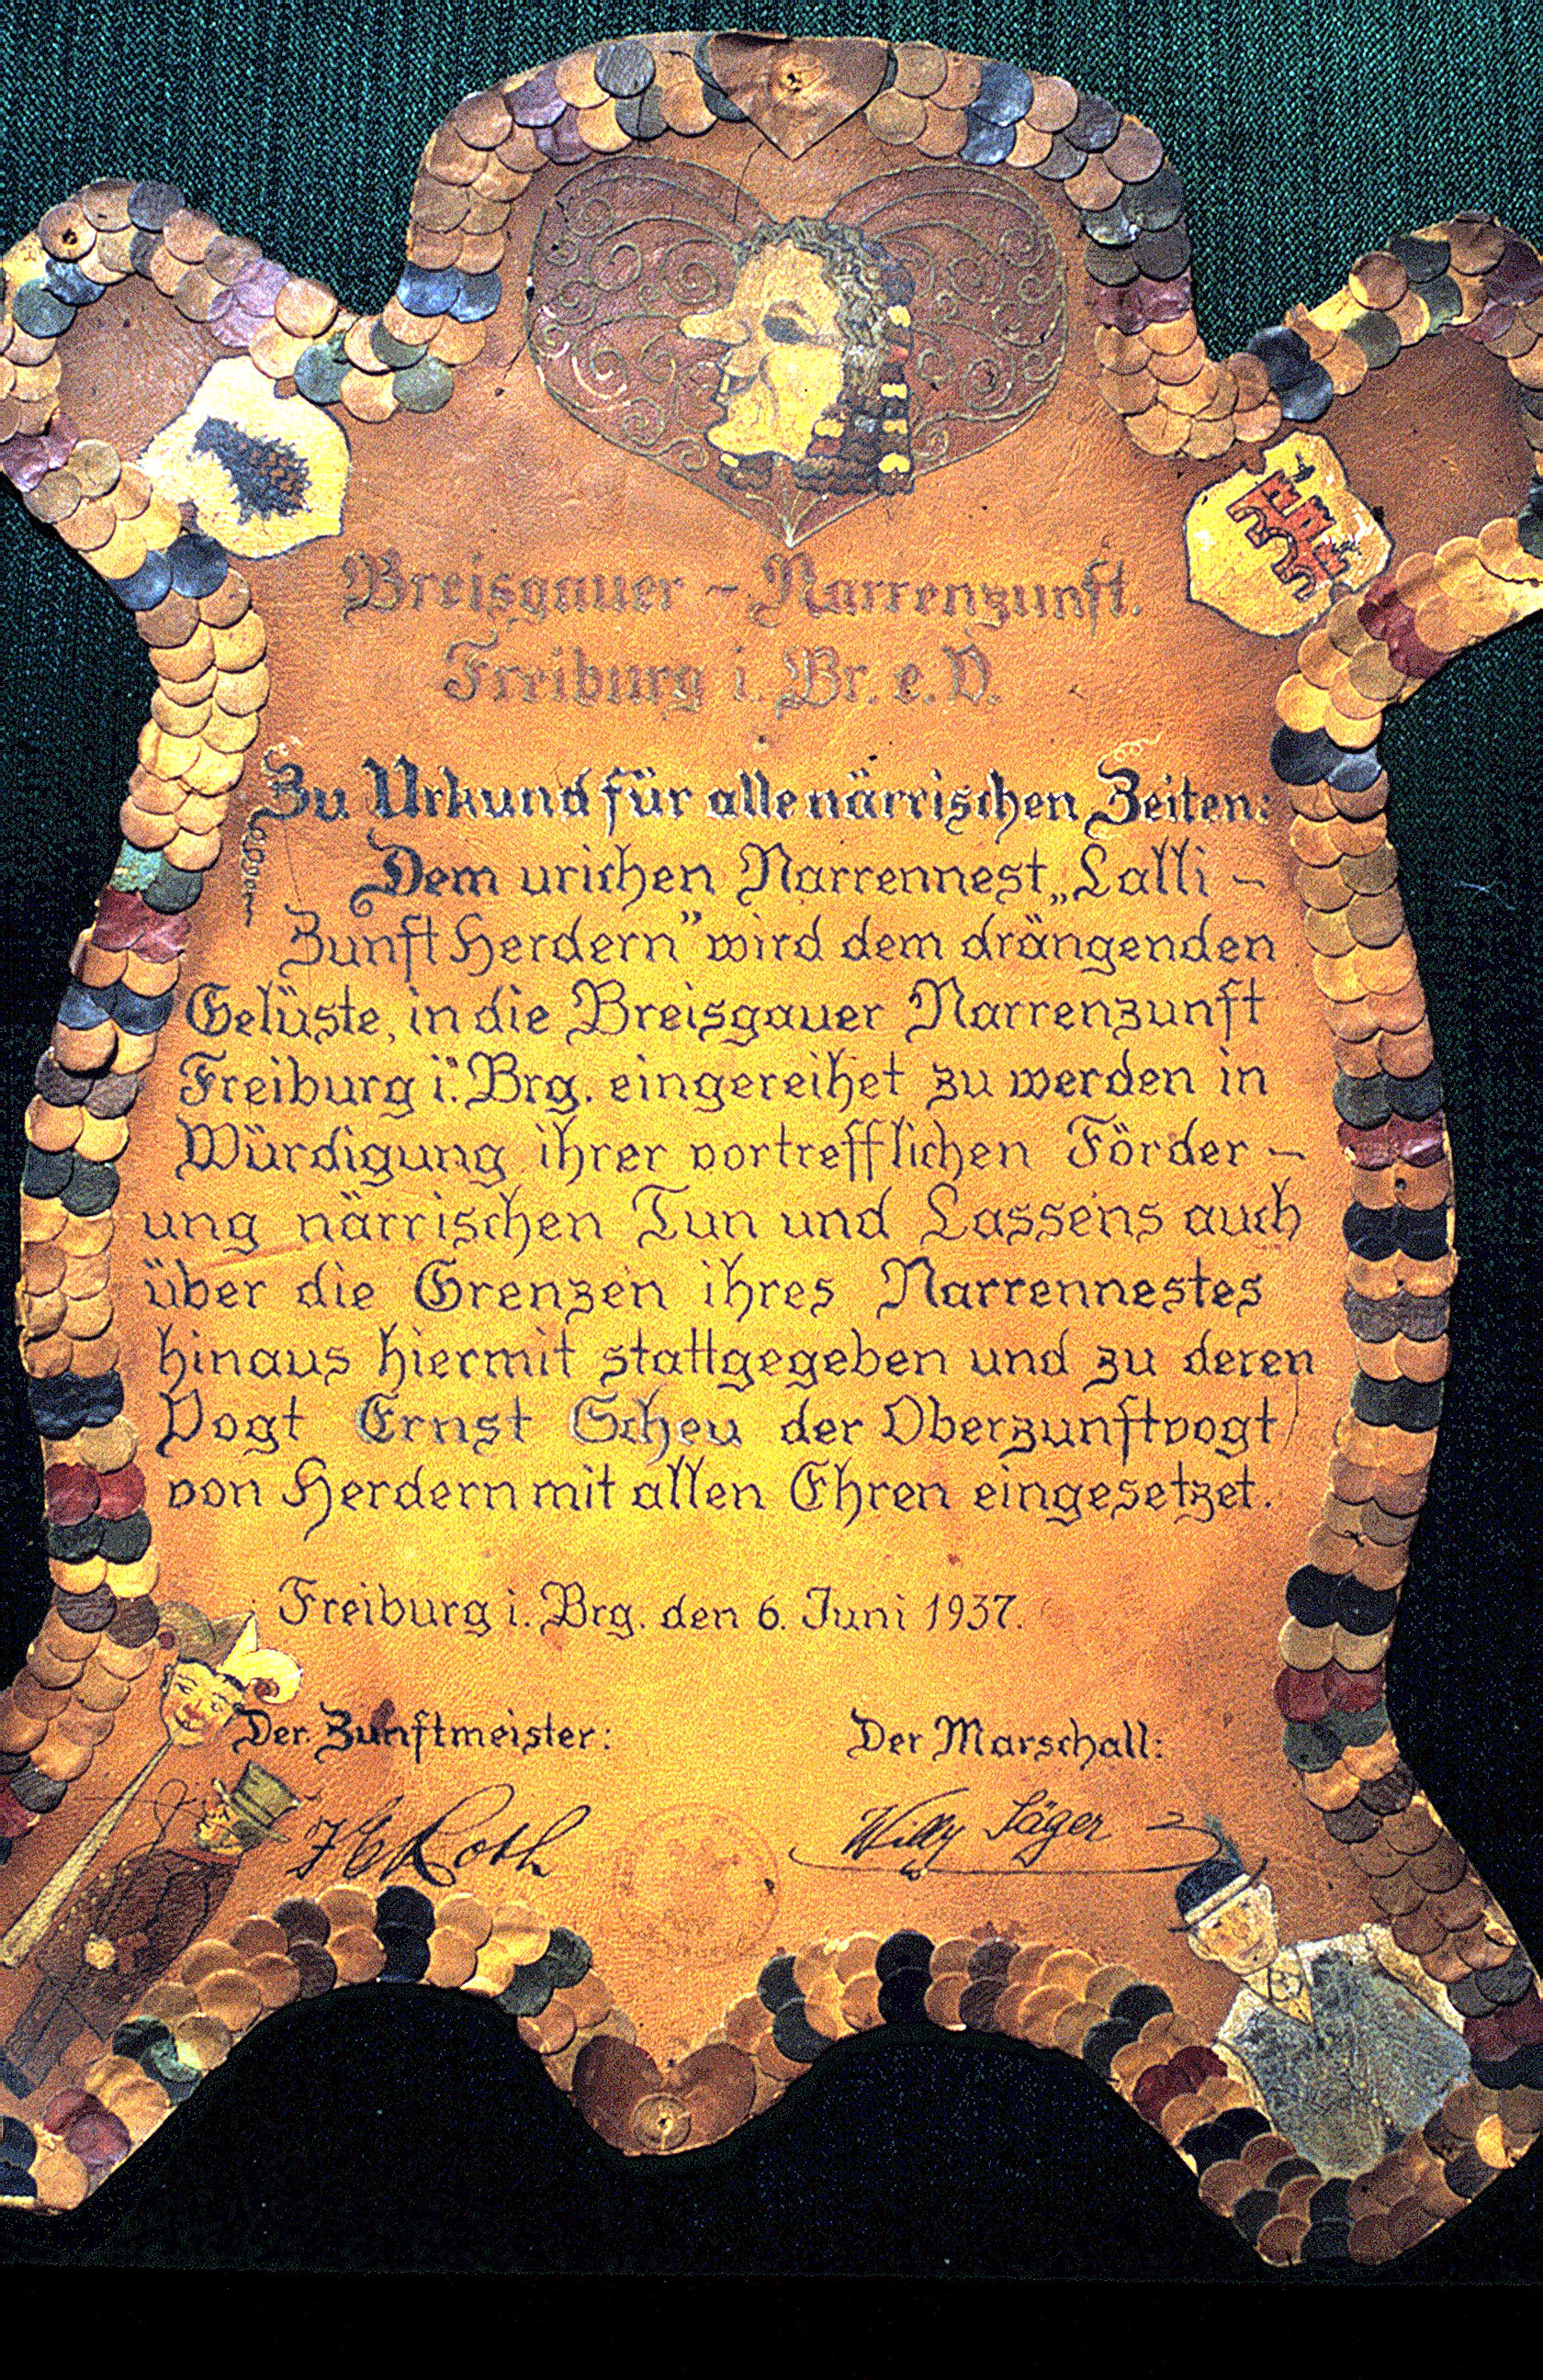 Breisgauer - Narrenzunft.
Freiburg i. Br. e. V.
Zu Urkund für alle närrischen Zeiten:
Dem urichen Narrennest „Lalli -
Zunft Herdern” wird dem drängenden
Gelüste, in die Breisgauer Narrenzunft
Freiburg i. Brg. eingereihet zu werden in
Würdigung ihrer vortrefflichen Förder -
ung närrischen Tun und Lassens auch
über die Grenzen ihres Narrennestes
hinaus hiermit stattgegeben und zu deren
Vogt Ernst Scheu der Oberzunftvogt
von Herdern mit allen Ehren eingesetzet.
Freiburg i. Brg. den 6. Juni 1937.
Der Zunftmeister: Der Marschall:
Roth Willy Jäger